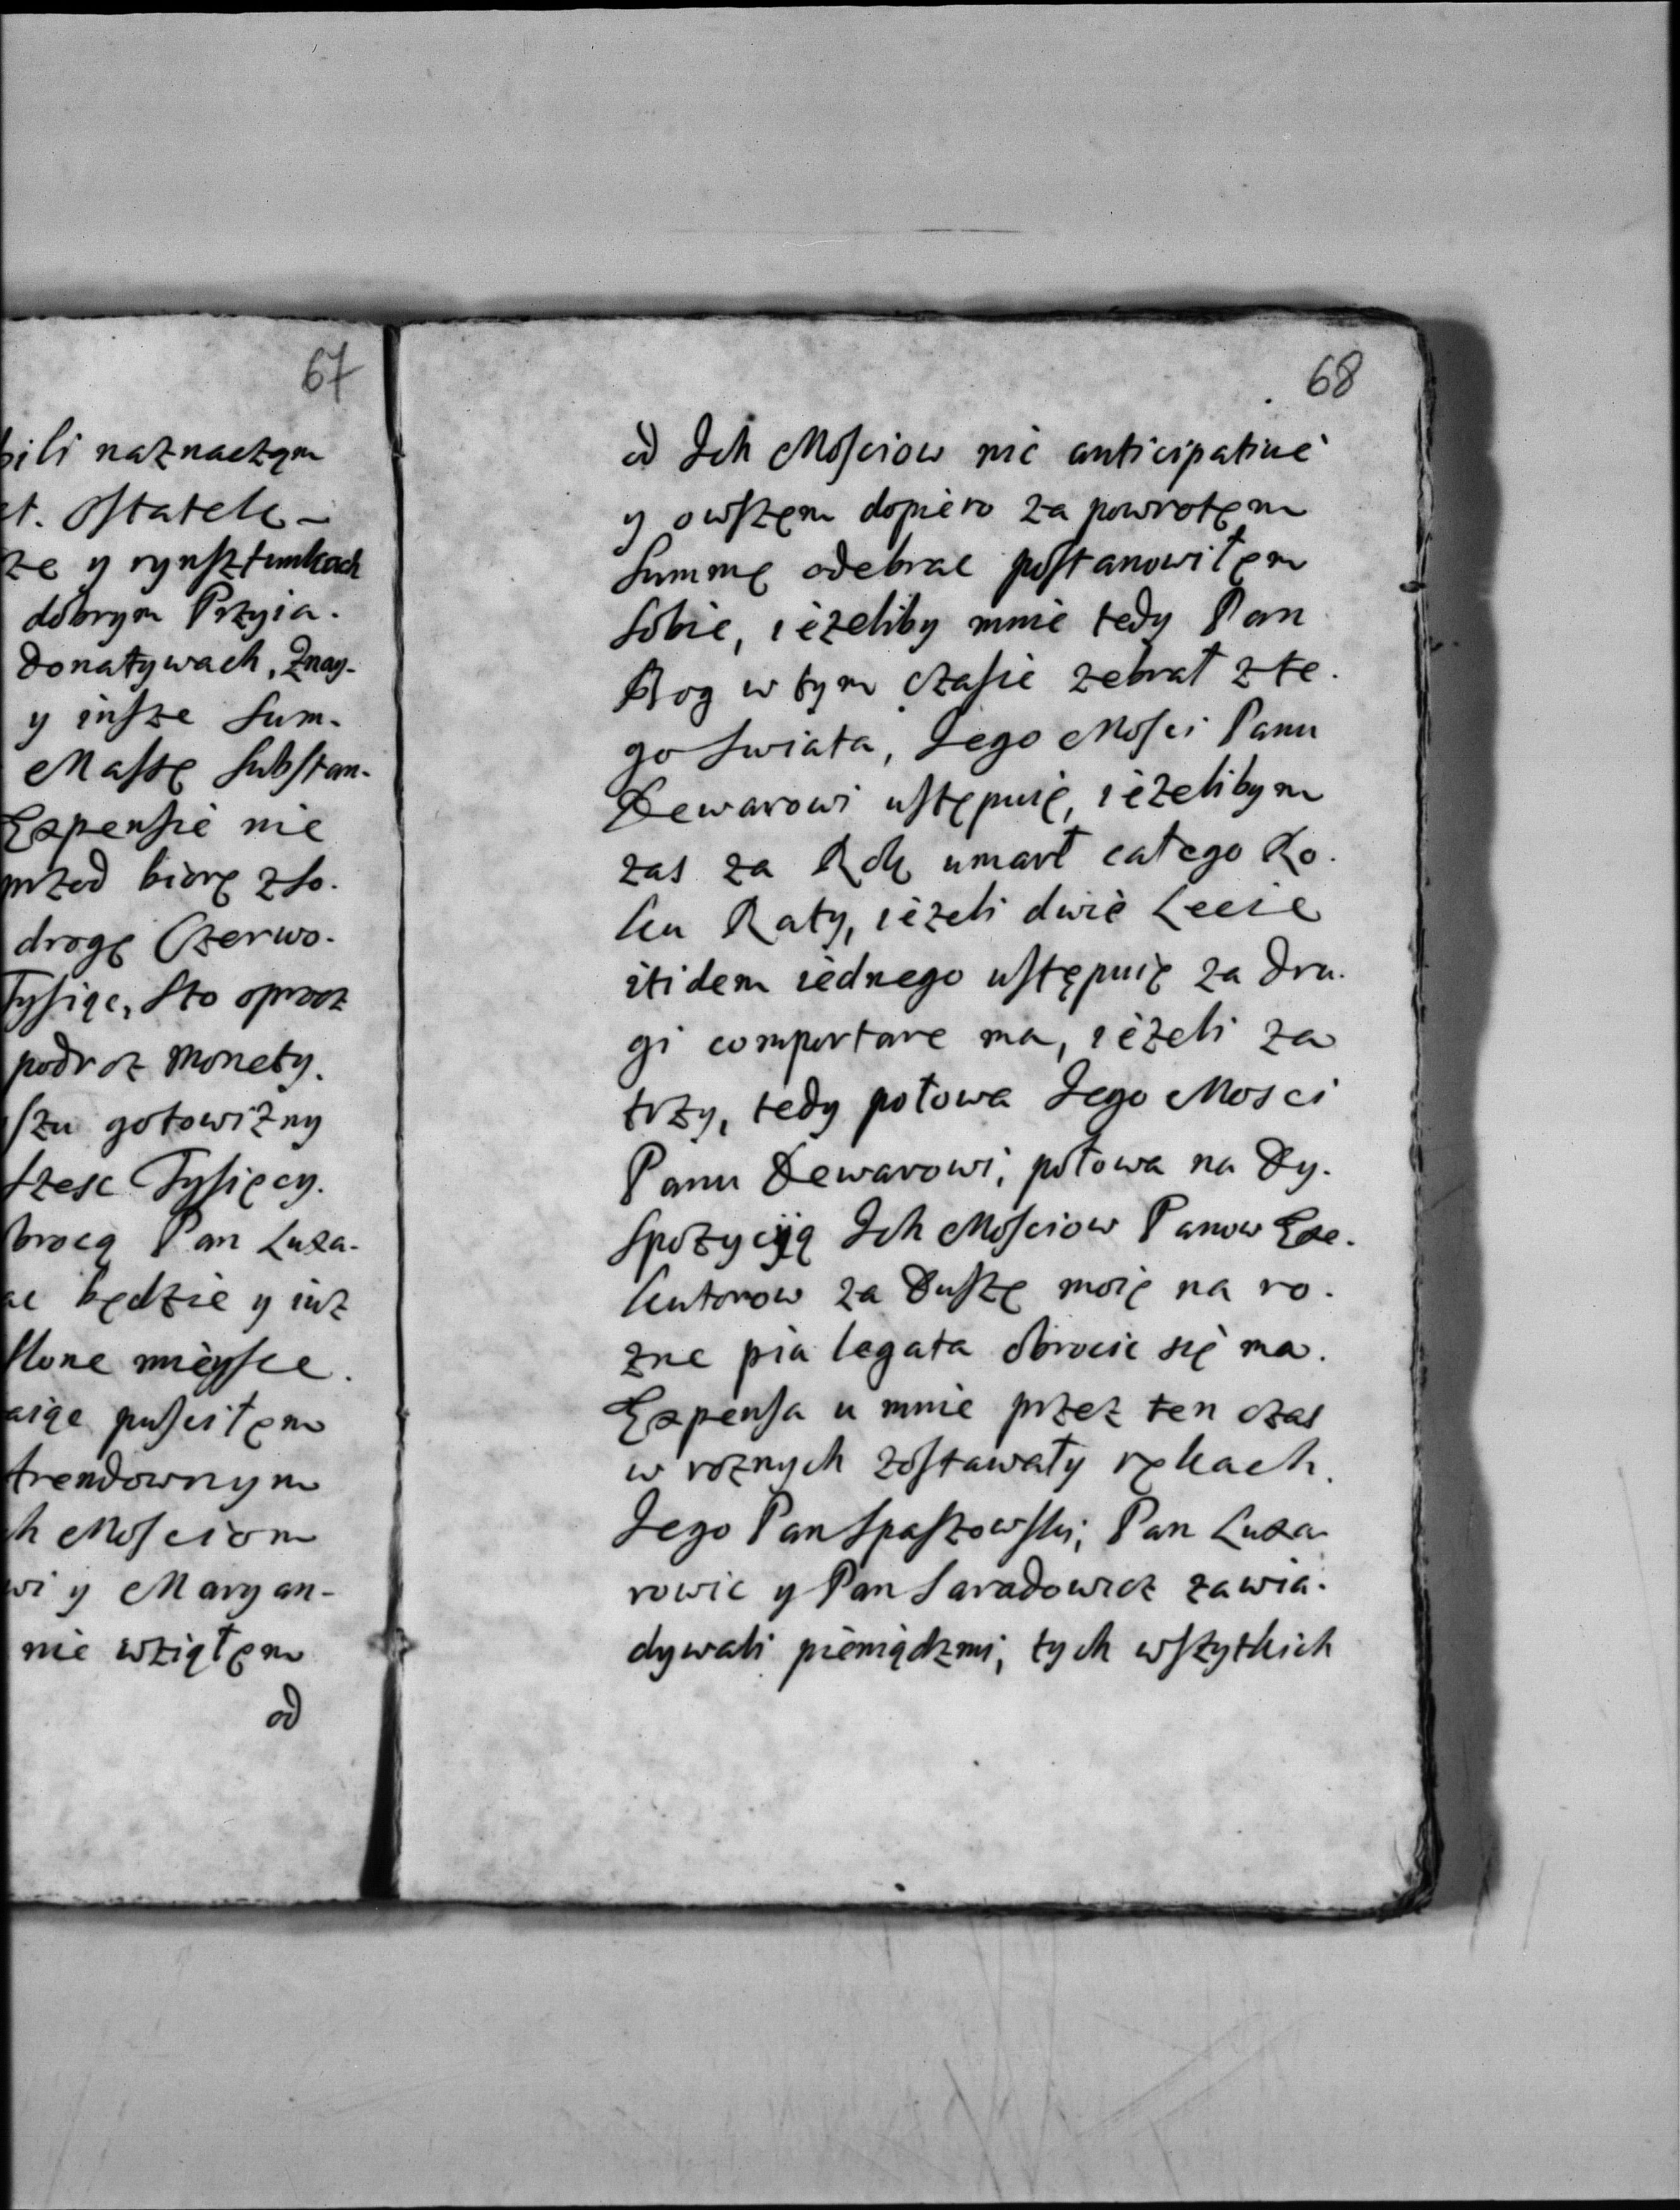 67
bili naznaczam
et. Ostatek -
ze y rynsztunkach
dobrym Przyia.
donatywach, Znay-
y insze Sum-
Massę Substan-
Expensie nie
przed biorę zso.
drogę Czerwo.
Tysiąc, Sto oprocz
podroz Monety.
szu gotowizny
szesc Tysięcy.
brocą Pan Luza-
ac będzie y iuz
slone mieysce.
aiąc pusciłem
trendownym
h Mosciom
wi y Maryan-
nie wziąłem
od
68
od Ich Mosciow nic anticipative
y owszem dopiero za powrotem
Summę odebrac postanowiłem
Sobie, ieżeliby mnie tedy Pan
Bog w tym czasie zebrał z te.
go Swiata, Jego Mosci Panu
Dewarowi ustępuię, ieżelibym
zas za Rok umarł całego Ro.
ku Raty, ieżeli dwie Lecie
itidem iednego ustępuię za dru.
gi comportare ma, ieżeli za
trzy, tedy połowa Jego Mosci
Panu Dewarowi, połowa na Dy.
spozycyią Ich Mosciow Panow Exe.
kutorow za Duszę moię na ro.
zne pia legata obrocic się ma.
Expensa u mnie przez ten czas
w roznych zostawały rękach.
Jego Pan Spaszowski, Pan Luza.
rowic y Pan Saradowicz zawia.
dywali pieniądzmi, tych wszytkich